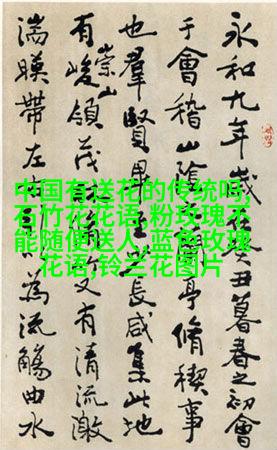 永和九年歲癸丑暮春之初會
于會稽山陰亭脩稧事
也羣賢畢長咸集此地
有崇山峻領茂又有清流激
湍暎帶左為流觴曲水
中国有送花的传统吗,
石竹花花语,粉玫瑰不
能随便送人,蓝色玫瑰
花语,铃兰花图片